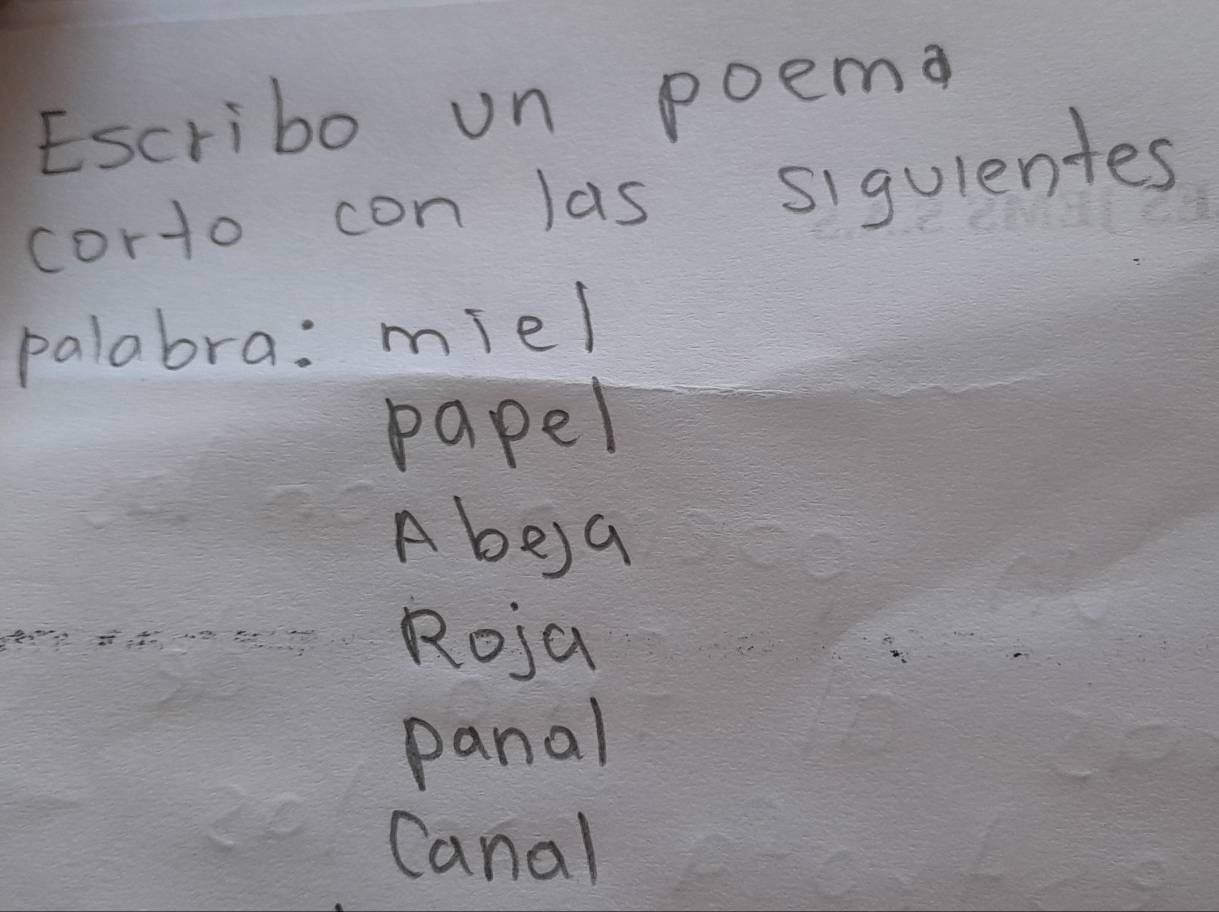 Escribo un poema
corto con las siguientes
palabra: miel
papel
Abeja
Roja
panal
Canal